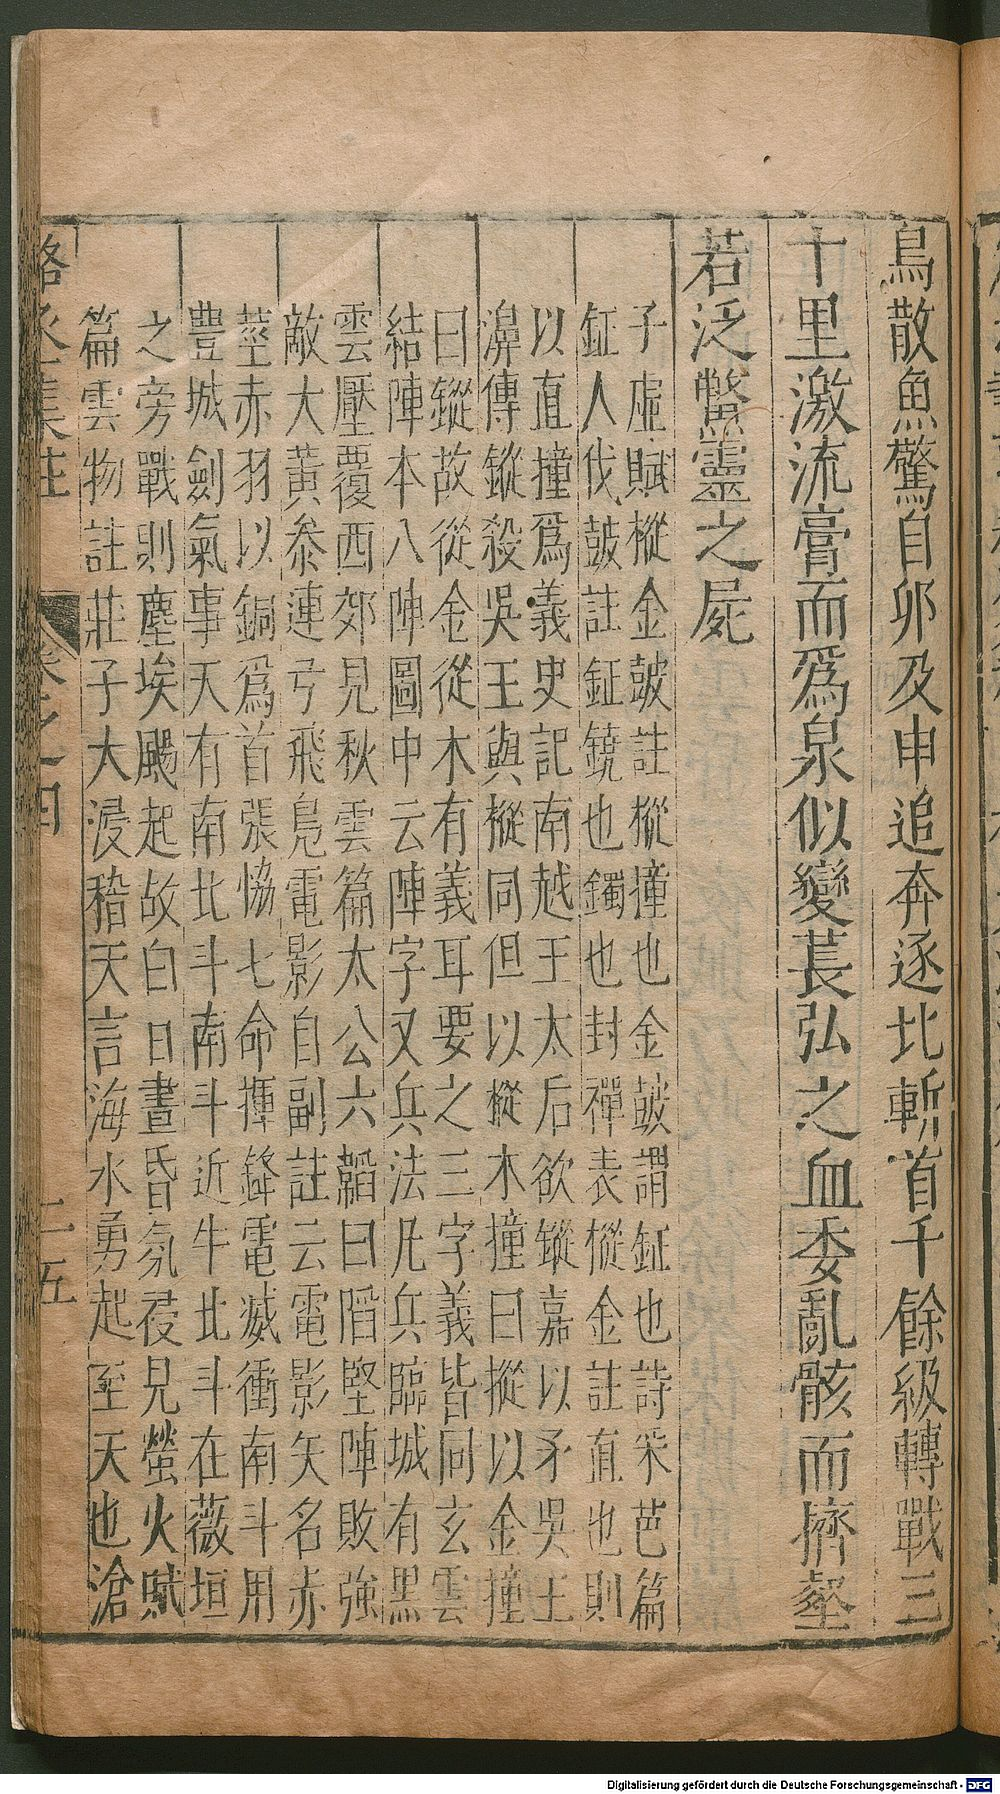 鳥散魚驚自卯及申追奔逐北斬首千餘級轉戰三
十里激流膏而爲泉似變萇弘之血委亂骸而擠壑
若泛鱉靈之屍
子虛賦樅金鼓註樅撞也金鼓謂鉦也詩采芭篇
鉦人伐鼓註鉦鐃也鐲也封禪表樅金註直也則
以直撞爲義史記南越王太后欲鏦嘉以矛吳王
濞傳鏦殺吳王與樅同但以樅木撞曰樅以金撞
曰鏦故從金從木有義耳要之三字義皆同玄雲
結陣本八陣圖中云陣字又兵法凡兵臨城有黑
雲壓覆西郊見秋雲篇太公六韜曰陷堅陣敗強
敵大黃叅連弓飛鳧電影自副註云電影矢名赤
莖赤羽以銅爲首張恊七命揮鋒電滅衝南斗用
豊城劍氣事天有南北斗南斗近牛北斗在薇垣
之旁戰則塵埃颺起故白日晝昏氛祲見螢火賦
篇雲物註莊子大浸稽天言海水勇起至天也滄
駱丞集註 卷之四 二五
Digitalisierung gefördert durch die Deutsche Forschungsgemeinschaft - DFG